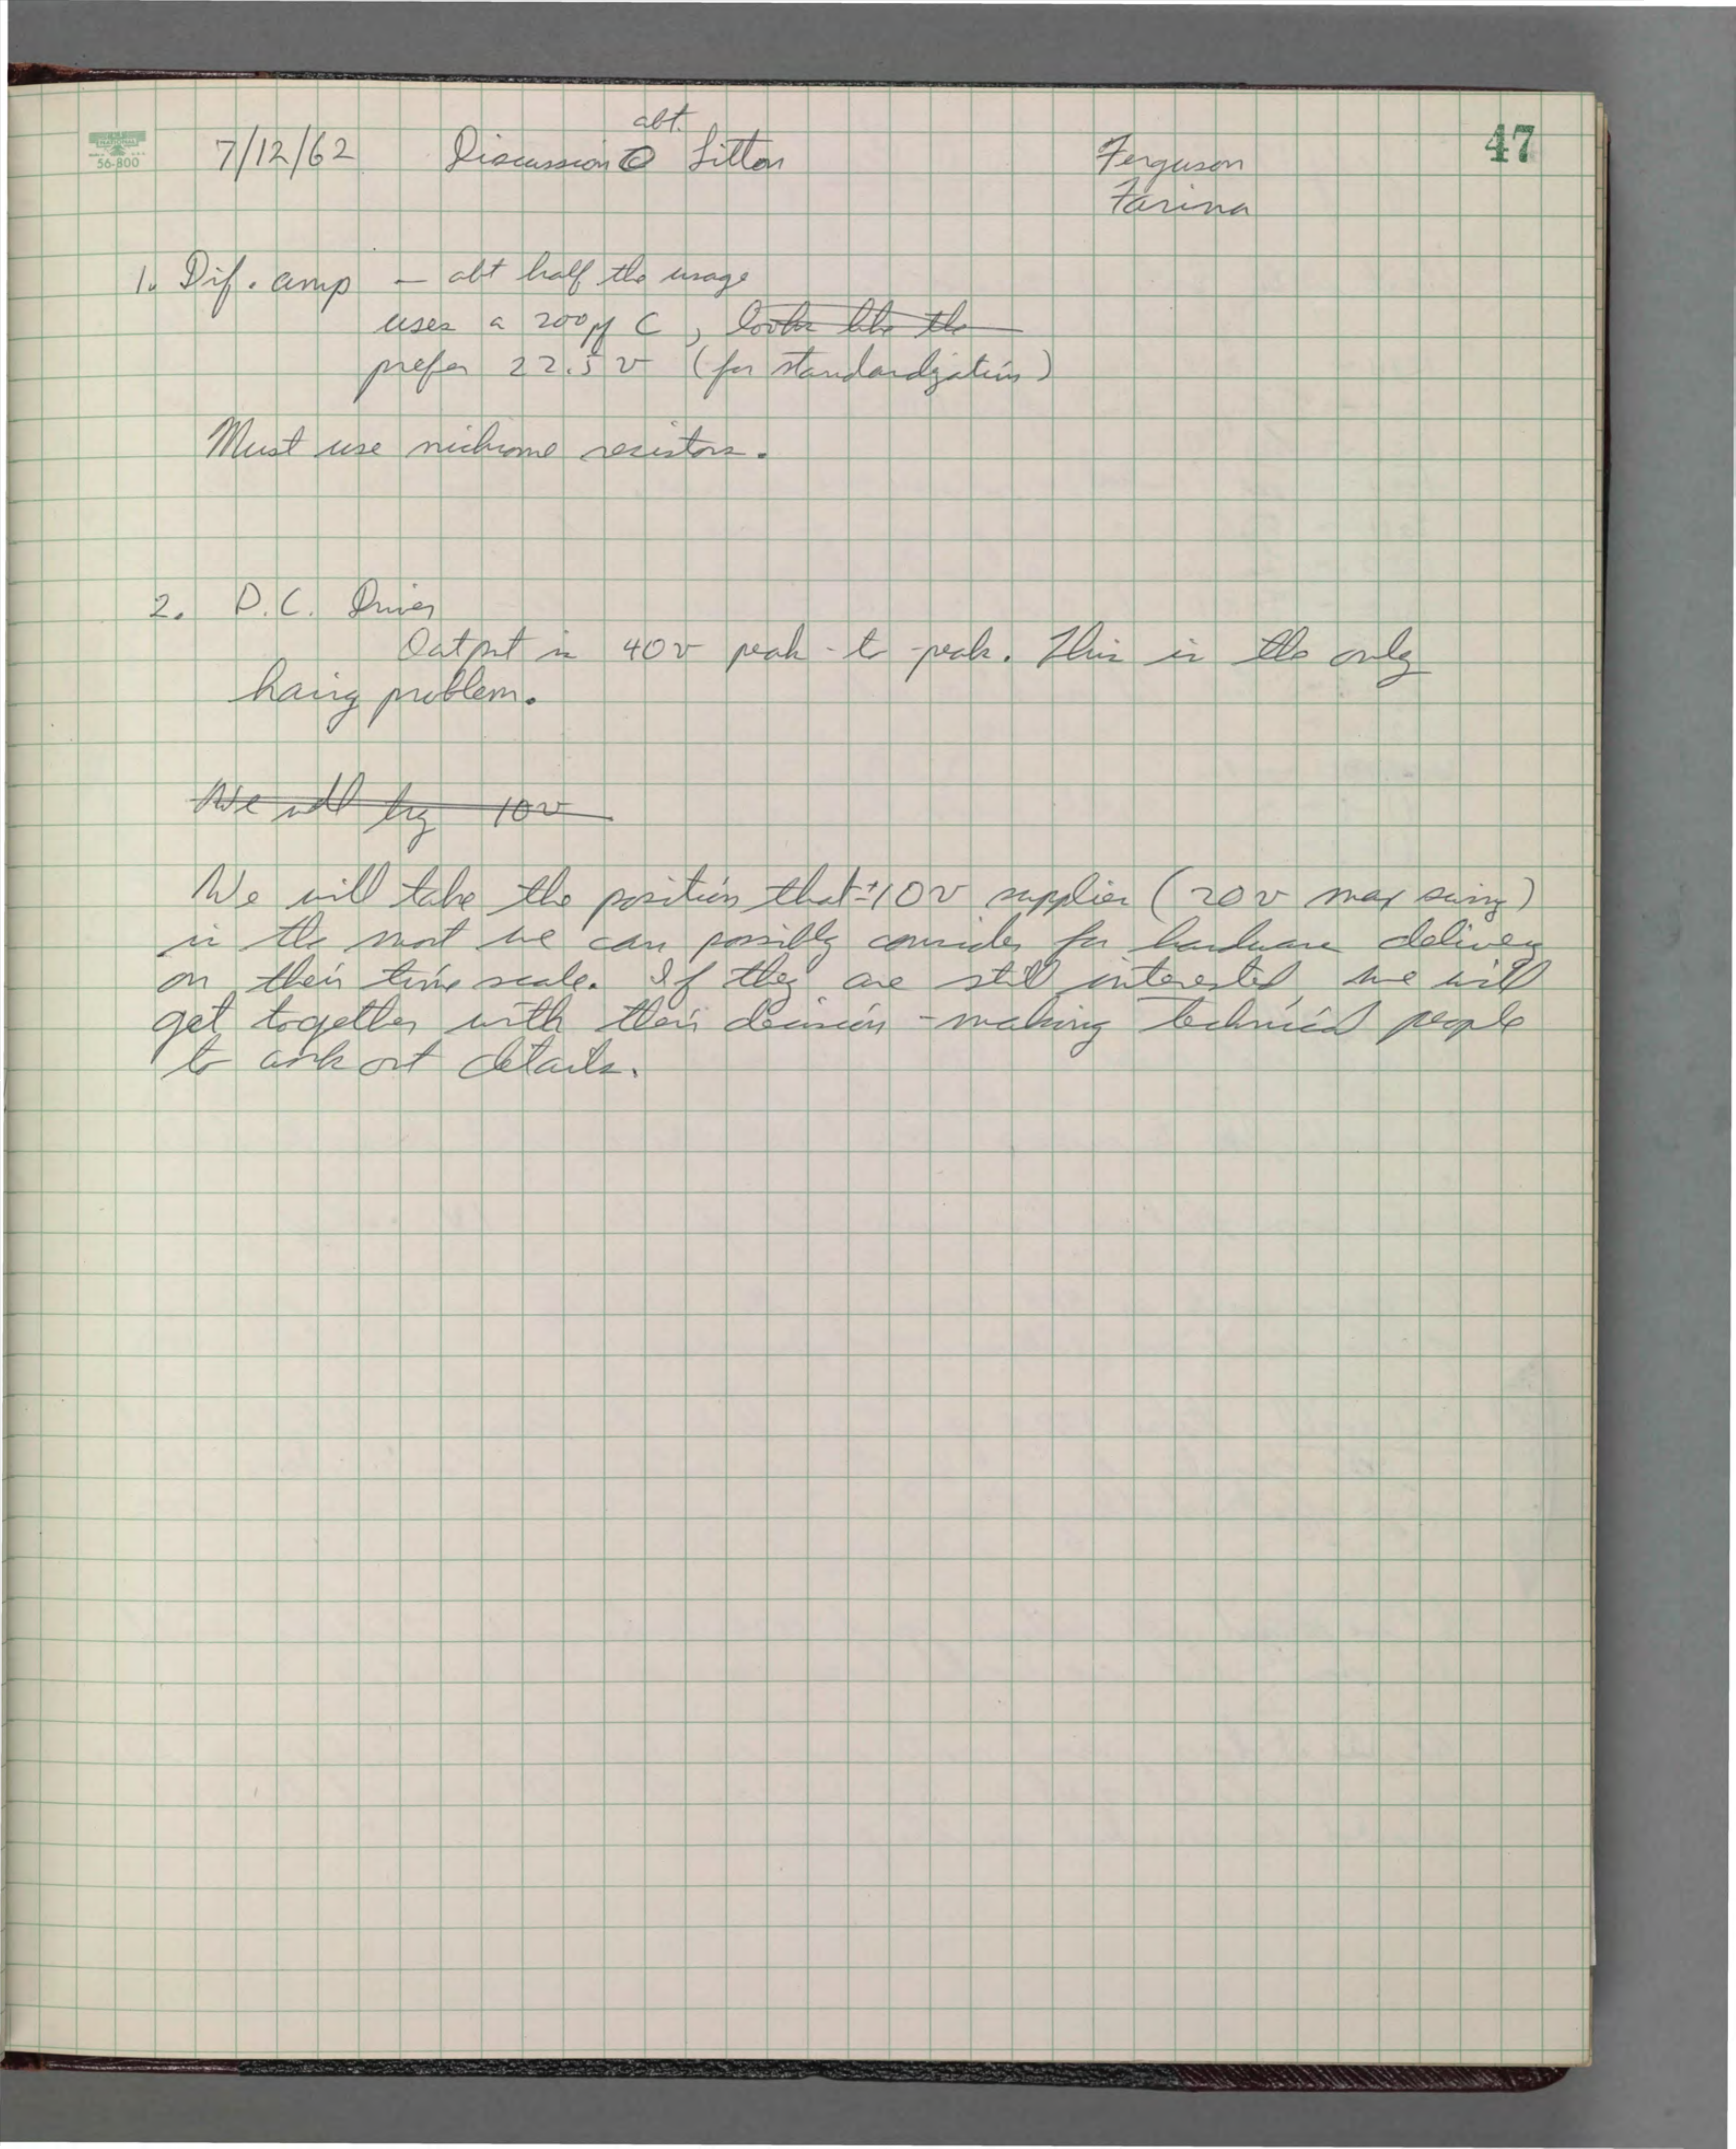 47
56-800
7/12/62 Discussion abt. Litton Ferguson
Farina
1. Dif. amp — abt half the usage
uses a 200 pf C, looks like the
prefer 22.5 v (for standardization)
Must use nichrome resistors.
2. D.C. Driver
Output is 40v peak-to-peak. This is the only
problem.
We will try 10v
We will take the position that ±10v supplies (20v max swing)
is the most we can possibly consider for hardware delivery
on their time scale. If they are still interested, we will
get together with their decision-making technical people
to work out details.